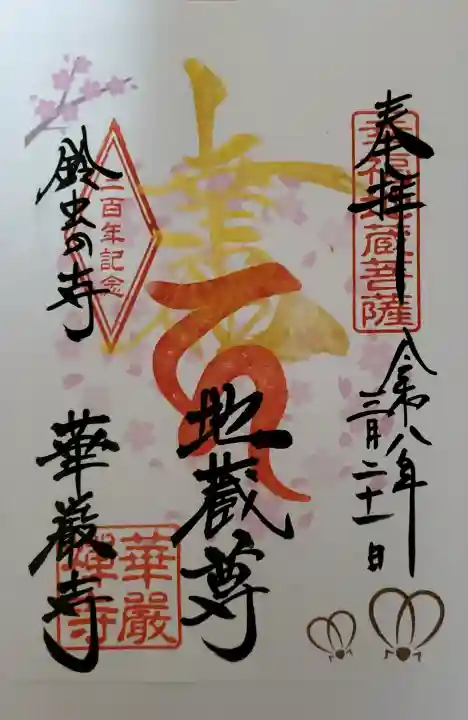 奉拝
幸福地蔵菩薩
令和八年
三月二十一日
幸福
地蔵尊
二百年記念
鈴虫の寺
華厳寺
華嚴
禅寺